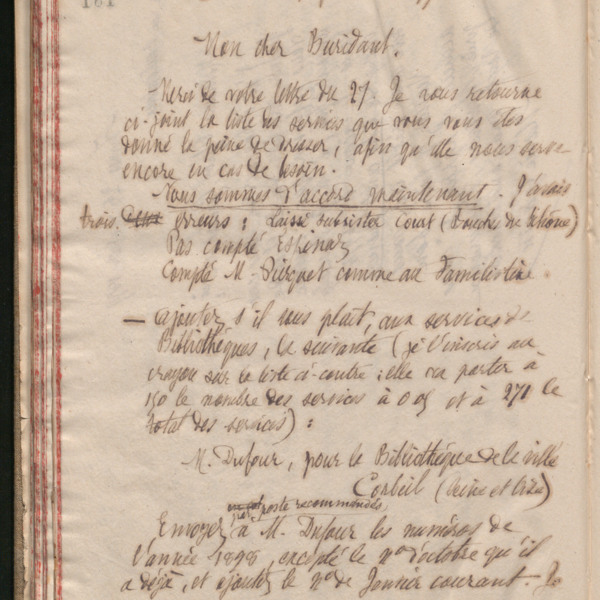 181
Mon cher Buridant,
Merci de votre lettre du 27. Je vous retourne
ci-joint la liste des services que vous vous êtes
donné la peine de dresser, afin qu'elle nous serve
encore en cas de besoin.
Nous sommes d'accord maintenant. J'avais
trois erreurs : Laissé subsister Court (Bouche du Rhône)
Pas compté Espinaz
Compté M. Piergnet comme au Familistère
— ajoutez s'il vous plaît, aux services de
Bibliothèques, la suivante (je l'inscris au
crayon sur la liste ci-contre : elle va porter à
150 le nombre des services à 0.05 et à 271 le
total des services) :
M. Dufour, pour la Bibliothèque de la ville
Corbeil (Seine et Oise)
par poste recommandés
Envoyez à M. Dufour les numéros de
l'année 1898, excepté le n° d'octobre qu'il
a déjà, et ajoutez le n° de Janvier courant. Je